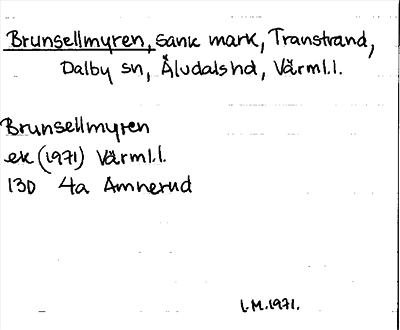 Brunsellmyren, sank mark, Transtrand,
Dalby sn, Älvdals hd, Värml.l.
Brunsellmyren
ek (1971) Värml.l.
13D 4a Amnerud
L.M.1971.